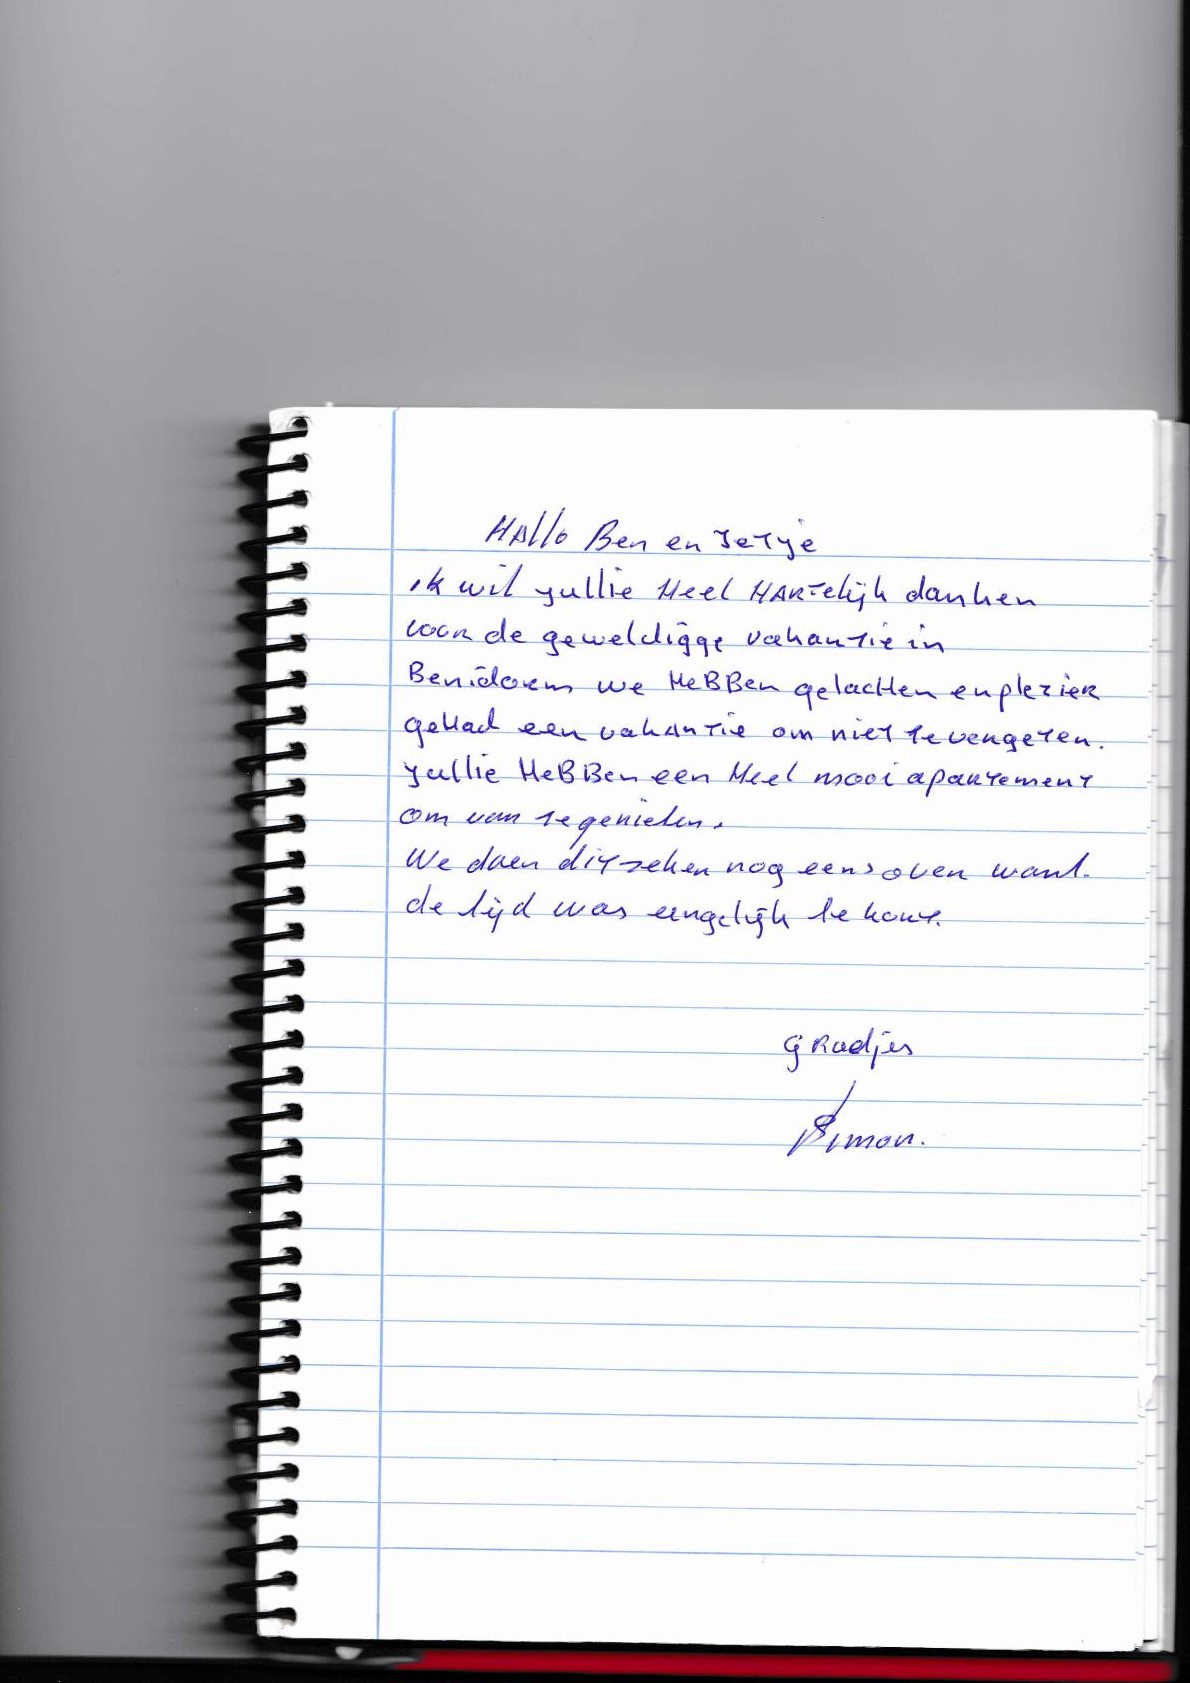 Hallo Ben en Jetje
ik wil jullie Heel HARTelijk danken
voor de geweldigge vakantie in
Benidorm we HeBBen gelachten en plezier
geHad een vakantie om niet te vergeten.
jullie HeBBen een Heel mooi apartement
om van te genieten.
We doen dit zeker nog eens over want.
de tijd was eingelijk te kort.
GRoetjes
Simon.